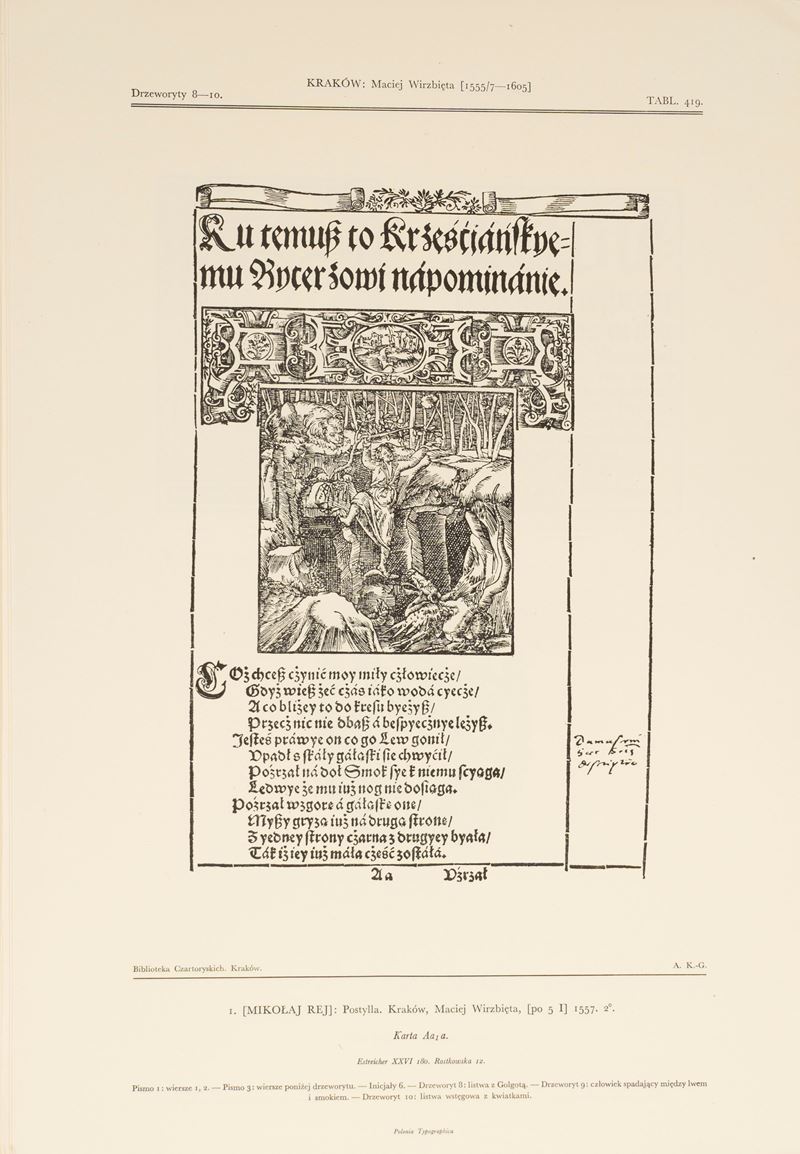 KRAKÓW: Maciej Wirzbięta [1555/7—1605]
Drzeworyty 8—10.
TABL. 419.
Ku temuß to Krześćiáńſkye=
mu Rycerzowi nápominánie.
COż chceß czynić moy miły człowiecze/
Gdyż wieß żeć czás iáko wodá cyecze/
A co bliżey to do kreſu byeżyß/
Przecż nic nie dbaß á beſpyecżnye leżyß.
Jeſteś práwye on co go Lew gonił/
Vpadł s ſkáły gáłąſki ſie chwyćił/
Poźrzał ná doł Smok ſye k niemu ſcyąga/
Ledwye że mu iuż nog nie doſiąga.
Poźrzał wzgorę á gáłąſkę onę/
Myßy gryzą iuż ná drugą ſtronę/
Z yedney ſtrony cżarna z drugyey byała/
Ták iż iey iuż máła cżęść zoſtáłá.
Aa Vźrzał
Biblioteka Czartoryskich. Kraków.
A. K.-G.
1. [MIKOŁAJ REJ]: Postylla. Kraków, Maciej Wirzbięta, [po 5 I] 1557. 2°.
Karta Aa₁ a.
Estreicher XXVI 180. Rostkowska 12.
Pismo 1: wiersze 1, 2. — Pismo 3: wiersze poniżej drzeworytu. — Inicjały 6. — Drzeworyt 8: listwa z Golgotą. — Drzeworyt 9: człowiek spadający między lwem
i smokiem. — Drzeworyt 10: listwa wstęgowa z kwiatkami.
Polonia Typographica